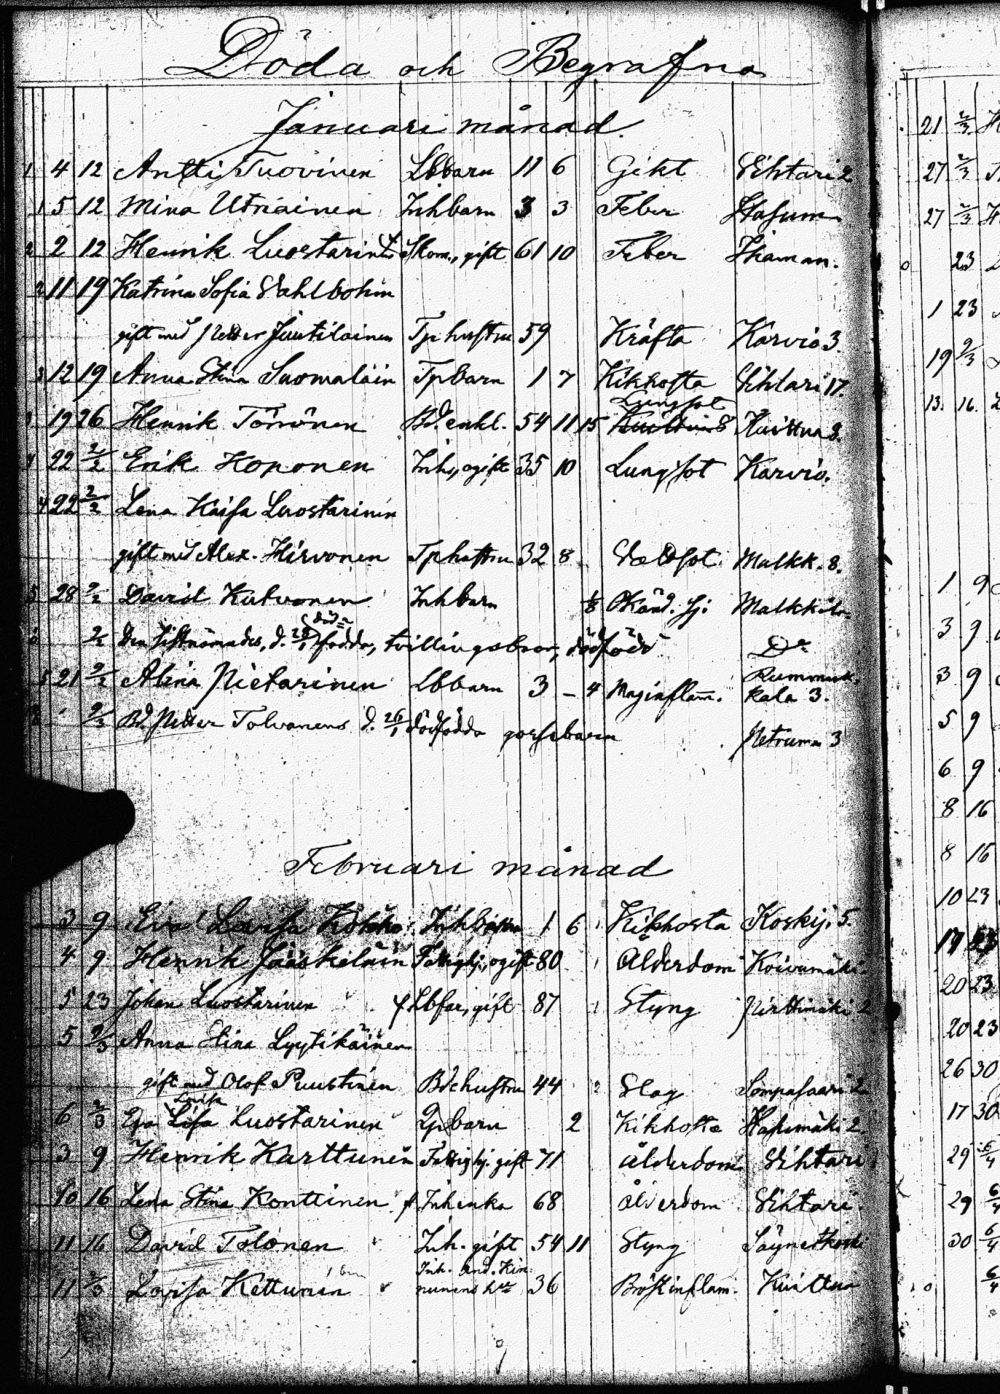 Döda och Begrafna
Januari månad.
1 4 12 Antti Tuovinen Lbbarn 11 6 Gikt Vihtari 2
1 5 12 Mina Utriainen Inhbarn 3 3 Feber
2 2 12 Henrik Luostarinen gift 61 10 Feber
2 11 19 Katrina Sofia Vahlbohm
gift med Petter Juutilainen Tp hustru 59 Kräfta Karvio 3.
3 12 19 Anna Stina Suomaläin Tpbarn 1 7 Kikhosta Vihtari 17.
Lungsot
3 19 26 Henrik Törrönen Bd. enkl. 54 11 15 Kuittua 3.
4 22 2/2 Erik Koponen Inh., ogift 35 10 Lungsot Karvio.
4 22 2/2 Lena Kaisa Luostarinen
gift med Alex. Hirvonen Tphustru 32 8 Malkk. 8.
5 28 2/2 David Kutvonen Inhbarn 1/8 Okänd. sj.
2/2 den sistnämndes, d. födda, tvillingsbror, dödfödd Do
5 21 2/2 Alina Pietarinen Lbbarn 3 - 4 Maginflam. Rummuk.
kala 3.
2/2 Bd. Petter Tolvanens d. 26/1 dödfödda gossebarn Petruma 3
Februari månad
3 9 Eva Lovisa Inhbarn 1 6 Kikhosta Koskij. 5.
4 9 Henrik Jääskeläin Fattighj., ogift 80 Ålderdom Koivumäki.
5 23 Johan Luostarinen f Lbfar, gift 87 Styng Pirttimäki 2
5 2/3 Anna Stina Lyytikäinen
gift med Olof Puustinen Bdehustru 44 Slag Sompasaari 2
Lovisa
6 2/3 Eva Luostarinen Tpbarn 2 Kikhosta 2
3 9 Henrik Karttunen Fattighj. gift 71 Ålderdom Vihtari
10 16 Lena Stina Konttinen f Inhenka 68 Ålderdom Vihtari.
11 16 David Tolonen Inh. gift 54 11 Styng Säynetkoski
Inh. And. Kin
11 2/3 Lovisa Kettunen nunens hu 36 Bröstinflam. Kuittua
21 2/3
27 2/3
27 2/3
23
1 23
19 2/3
13. 16.
1 9
3 9
3 9
5 9
6 9
8 16
8 16
10 23
20 23
20 23
26 30
17 30
29 6/4
29 6/4
30 6/4
6/4